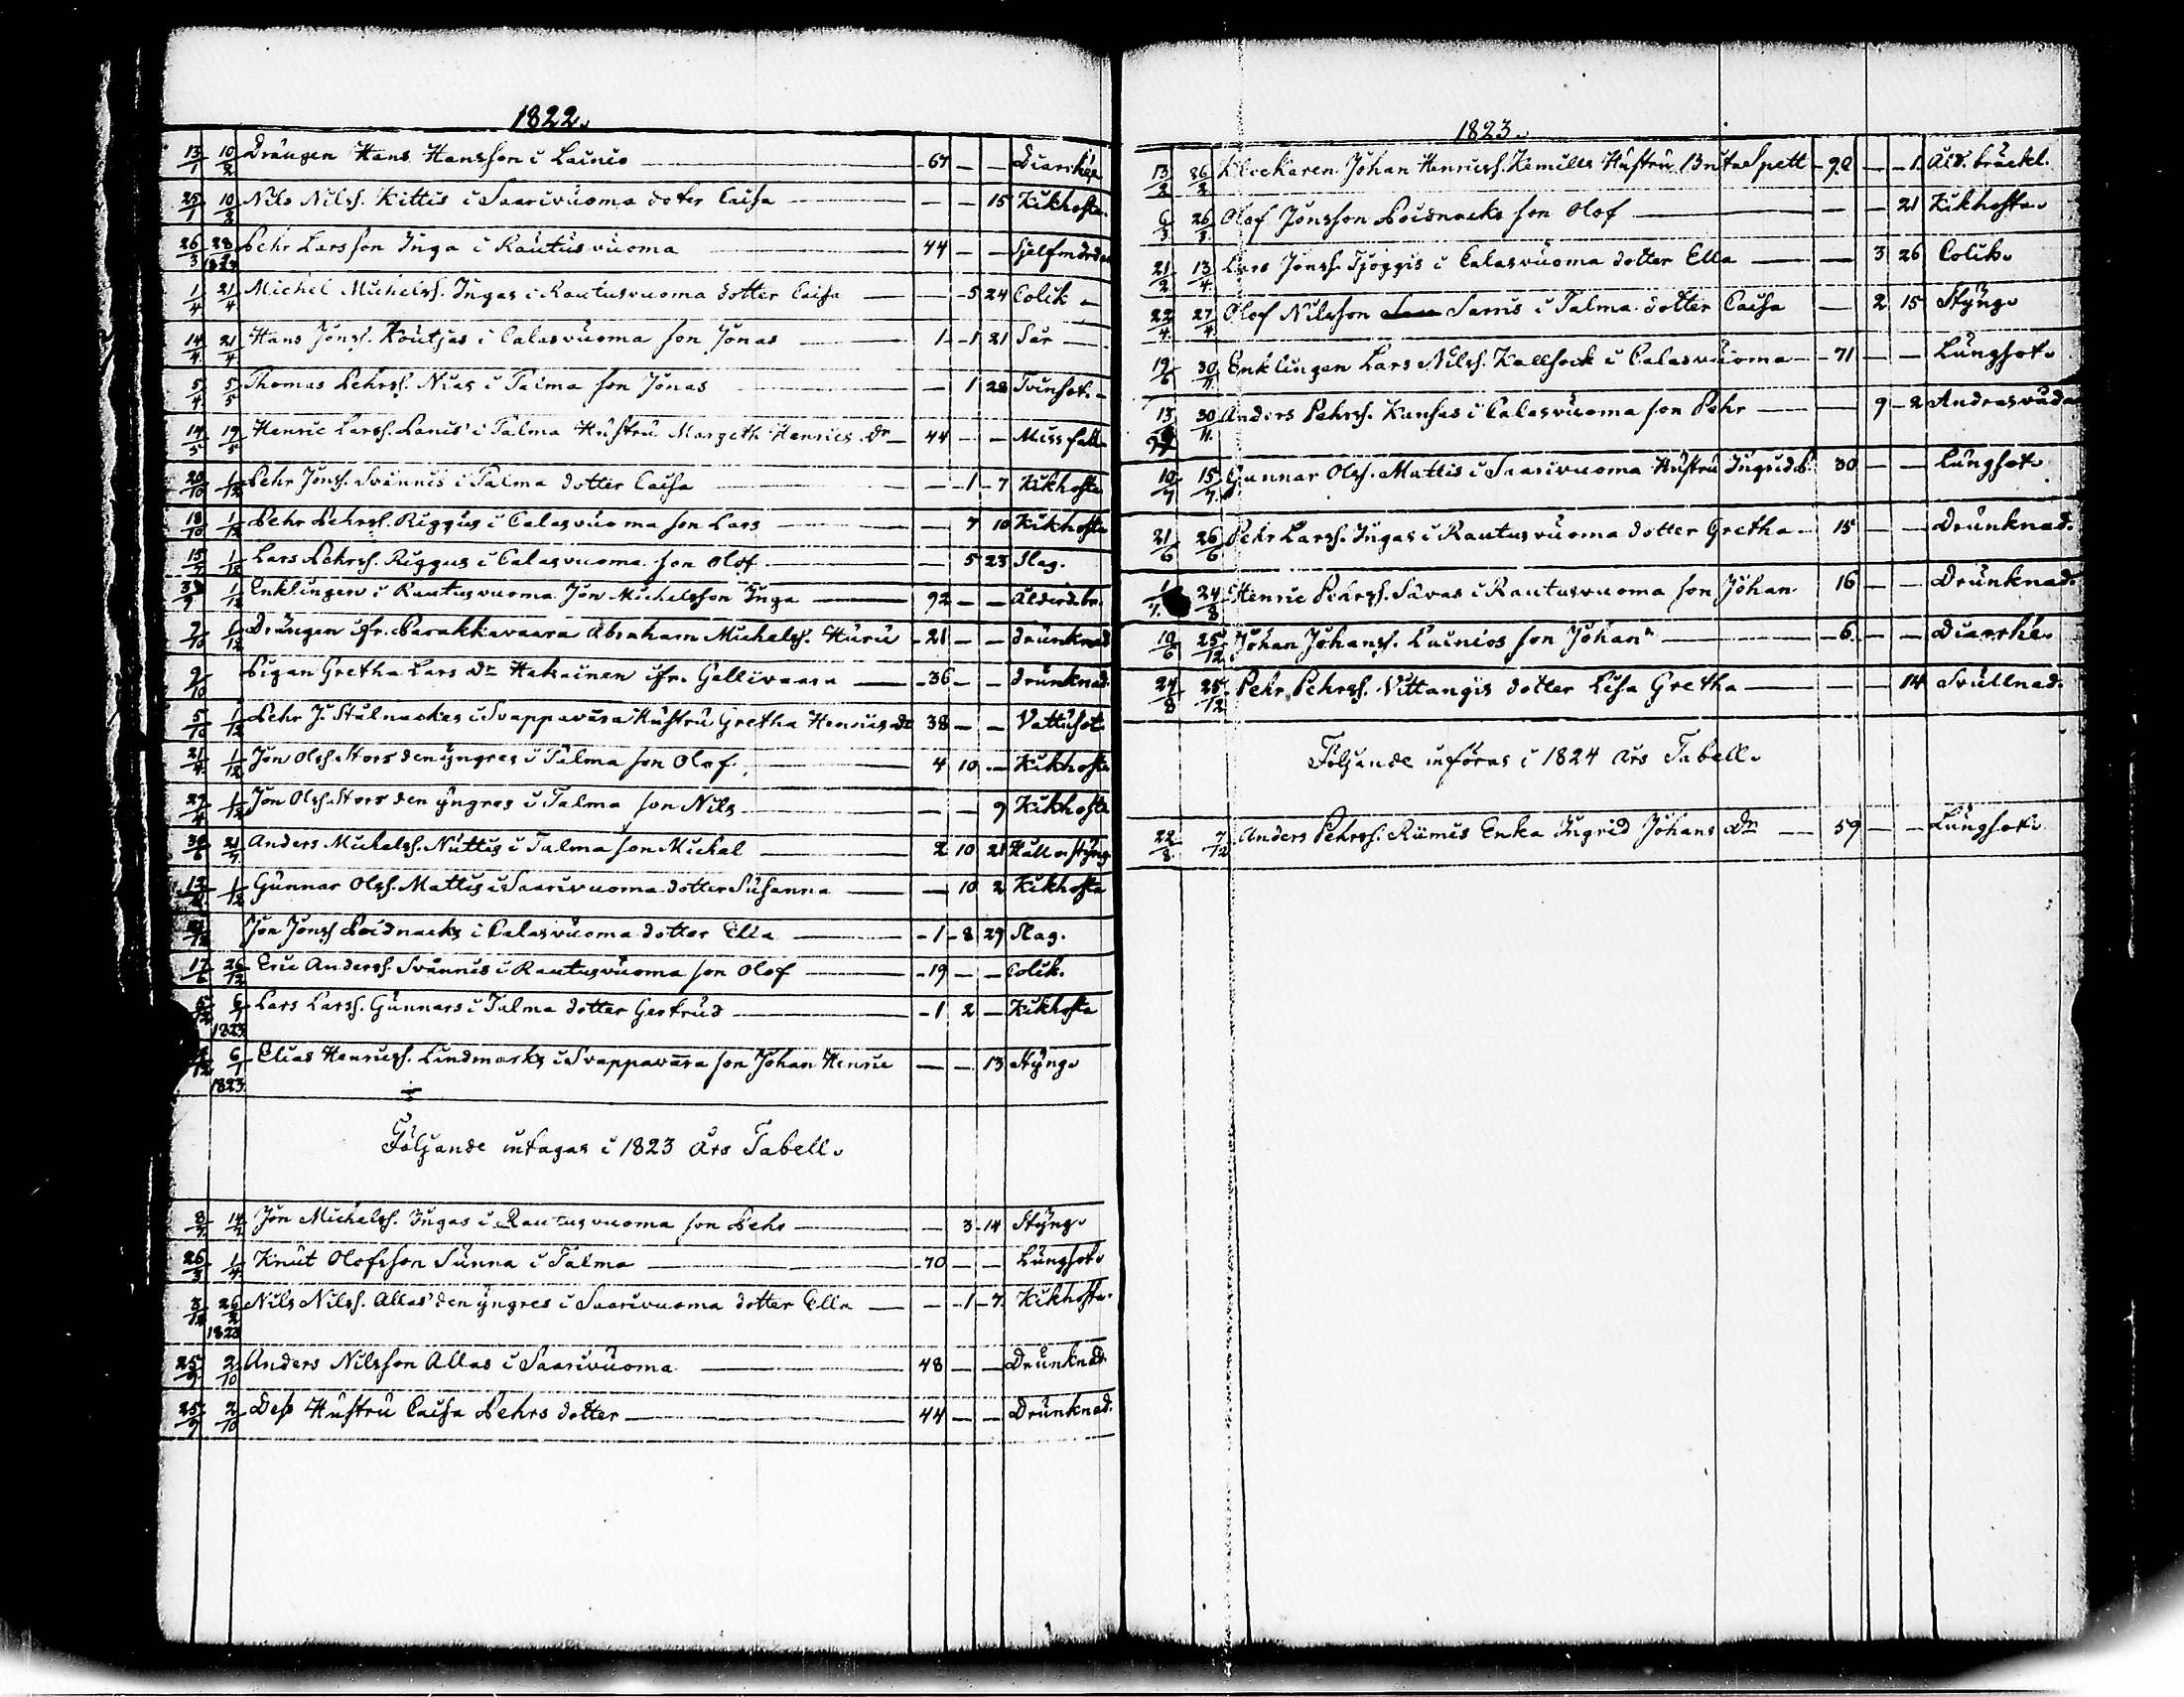 1822.
13/1 10/2 Drängen Hans Hansson i Lainio — 67 — — Diarrhée
25/1 10/2 Nils Nilss. Kittis i Saarivuoma doter Caisa — — 15 Kikhosta.
26/3 28/4 1823 Pehr Larsson Inga i Rautusvuoma 44 — — Sjelfmörd
1/4 21/4 Michel Michelss. Ingas i Rautusvuoma dotter Caisa — 5 24 Colik
14/4 21/4 Hans Jonss. Koutjas i Calasvuoma son Jonas 1 1 21 Sår
5/4 5/5 Thomas Pehrss. Nias i Talma son Jonas — 1 28 Tvinsot.
14/5 19/5 Henric Larss. Lanis i Talma Hustru Margeth Henrics Dr 44 — — Missfall
20/10 1/12 Pehr Jonss. Svannis i Talma dotter Caisa — 1 7 Kikhosta
18/10 1/12 Pehr Pehrss. Riggus i Calasvuoma son Lars — 7 10 Kikhosta
15/7 1/12 Lars Pehrss. Riggus i Calasvuoma son Olof — 5 23 Slag.
30/9 1/12 Enklingen i Rautusvuoma Jon Michelsson Inga 92 — — Ålderd.br.
7/10 1/12 Drängen ifr. Parakkavaara Abraham Michelss. Huru 21 — — drunknad
9/10 Pigan Gretha Lars Dr Hakainen ifr. Gellivaara 36 — — drunknad.
5/10 1/12 Pehr J. Stålnackes i Svappavara Hustru Gretha Henrics Dr 38 — — Vattusot.
21/4 1/12 Jon Olss. Stors den yngres i Talma son Olof 4 10 — Kikhosta
27/4 1/12 Jon Olss. Stors den yngres i Talma son Nils — — 9 Kikhosta
30/6 21/7 Anders Michelss. Nuttis i Talma son Michel 2 10 21 Håll o. styng
13 1/12 Gunnar Olss. Mattis i Saarivuoma dotter Susanna — 10 2 Kikhosta
Jon Jonss Poidnacks i Calasvuoma dotter Ella 1 8 29 Slag.
17/6 26/12 Eric Anderss. Svannis i Rautusvuoma son Olof 19 — — Colik.
6/12 6/1 1823 Lars Larss. Gunnars i Talma dotter Gertrud 1 2 — Kikhosta
6/1 1823 Elias Henricss. Lindmarks i Svappavara son Johan Henric — — 13 Styng.
Följande intagas i 1823 års Tabell.
8/7 14/7 Jon Michelss. Ingas i Rautusvuoma son Pehr — 3 14 Styng.
26/3 1/4 Knut Olofsson Sunna i Talma 70 — — Lungsot.
3/12 26/2 1823 Nils Nilss. Allas den yngres i Saarivuoma dotter Ella — 1 7 Kikhosta.
25/9 2/10 Anders Nilsson Allas i Saarivuoma 48 — — Drunknad.
25/9 2/10 Dess Hustru Caisa Pehrs dotter 44 — — Drunknad.
1823.
13/2 26/2 Klockaren Johan Henricss. Kemills Hustru Brita Spett 72 — 1 Åld. bräckl.
6/3 26/3 Olof Jonsson Poidnacks son Olof — — 21 Kikhosta.
21/2 13/4 Lars Jonss. Tjoggis i Calasvuoma dotter Ella — 3 26 Colik.
22/4 27/4 Olof Nilsson Sarris i Talma dotter Caisa — 2 15 Styng.
19/6 30/11 Enklingen Lars Nilss. Kallsock i Calasvuoma 71 — — Lungsot.
13 30/11 Anders Pehrss. Kuhas i Calasvuoma son Pehr — 9 2 Andrasvåda
10/7 15/7 Gunnar Olss. Mattis i Saarivuoma Hustru Ingrid P. 30 — — Lungsot.
21/6 26/6 Pehr Larss. Ingas i Rautusvuoma dotter Gretha 15 — — Drunknad.
1/7 24/8 Henric Pehrss. Savas i Rautusvuoma son Johan 16 — — Drunknad.
19/6 25/12 Johan Johanss. Lainios son Johan 6 — — Diarrhé.
24/8 25/12 Pehr Pehrss. Vittangis dotter Lisa Gretha — — 14 Svullnad.
Följande införas i 1824 års Tabell.
22/8 7/12 Anders Pehrss. Rimis Enka Ingrid Johans Dr 59 — — Lungsot.